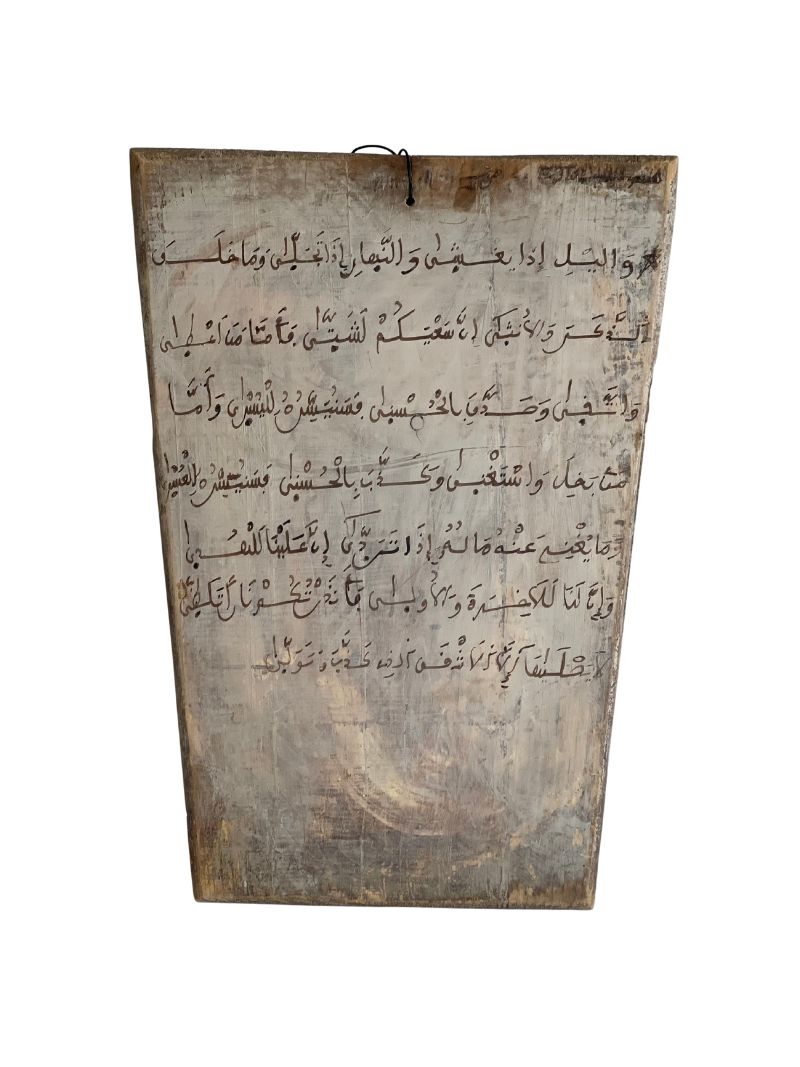 واليْلِ إذا يغشىٰ والنَّهارِ إذَا تَجَلّىٰ وَمَا خلَـــق
الــذَّكَــرَ وَالأُنثىٰ إنَّ سَعْيَــكُمْ لَشَتّىٰ فَأَمَّا مَنَ اَعْطـىٰ
وَاتَّقىٰ وَصَـــدَّقَ بِالْحُسْنىٰ فَسَنُيَسِّرُهُ لِلْيُسْرىٰ وَأَمَّا
مَنۢ بَخِلَ وَاسْتَغْنىٰ وَكَـــذَّبَ بِالْحُسْنىٰ فَسَنُيَسِّرُهُ لِلْعُسْرىٰ
وَمَا يُغْنِے عَنْهُ مَالُهُ إِذَا تَرَدّىٰ إِنَّ عَلَيْنَا لَلْهُـــدىٰ
وَإِنَّ لَنَا لَلَاخِــرَةَ وَالُاولـىٰ فَأَنذَرْتُكُمْ نَاراً تَلَظّىٰ
لَا يَصْلَـيٰهَا إِلَّا اَلَاشْقَى اَلذِے كَذَّبَ وَتَوَلّىٰ